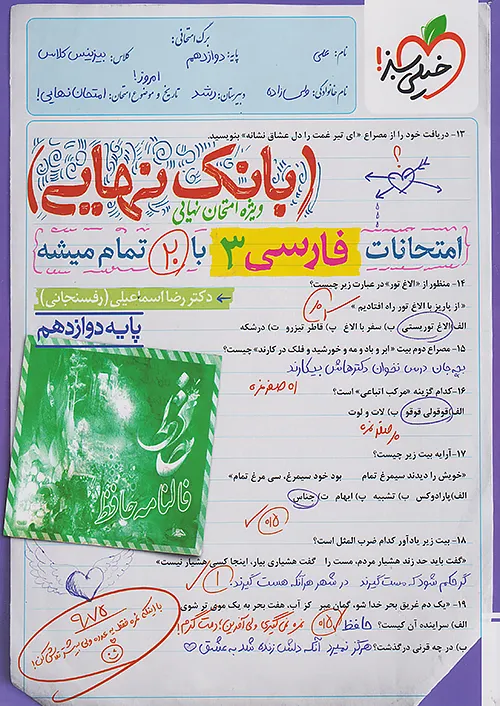 برگ امتحانی:
نام: علی
پایه: دوازدهم
کلاس: بیزینس کلاس
نام خانوادگی: طمس زاده
دبیرستان: رشد
تاریخ و موضوع امتحان: امروز! امتحان نهایی!
خیلی سبز!
۱۳- دریافت خود را از مصراع «ای تیر غمت را دل عشاق نشانه» بنویسید.
؟
(بانک نهایی)
ویژه امتحان نهایی
{امتحانات فارسی ۳ با ۲۰ تمام میشه}
دکتر رضا اسماعیلی (رفسنجانی)
پایه دوازدهم
۱۴- منظور از «الاغ تور» در عبارت زیر چیست؟
« از پاریز با الاغ تور راه افتادیم »
الف) الاغ توریستی ب) سفر با الاغ پ) قاطر تیزرو ت) درشکه
۱۵- مصراع دوم بیت « ابر و باد و مه و خورشید و فلک در کارند» چیست؟
بچه‌جان درس نخوان دکترهاش بیکارند
۱۶-کدام گزینه «مرکب اتباعی» است؟
اه صفر نمره
الف) قوقولی قوقو ب) لات و لوت
صفر نمره
۱۷- آرایه بیت زیر چیست؟
«خویش را دیدند سیمرغ تمام بود خود سیمرغ، سی مرغ تمام»
الف) پارادوکس ب) تشبیه پ) ایهام ت) جناس
۰/۵
حافظ
فالنامه حافظ
۱۸- بیت زیر یادآور کدام ضرب المثل است؟
«گفت باید حد زند هشیار مردم، مست را گفت هشیاری بیار، اینجا کسی هشیار نیست»
گر حکم شود که مست گیرند در شهر هر آنکه هست گیرند!
۱
۱۹- «یک دم غریق بحر خدا شو، گمان مبر کز آب، هفت بحر به یک موی تر شوی
الف) سراینده آن کیست؟ حافظ ۰/۵ نمره نمی‌گیری ولی آفرین! دمت گرم!
ب) در چه قرنی درگذشت؟ هرگز نمیرد آنکه دلش زنده شد به عشق
۹/۷۵